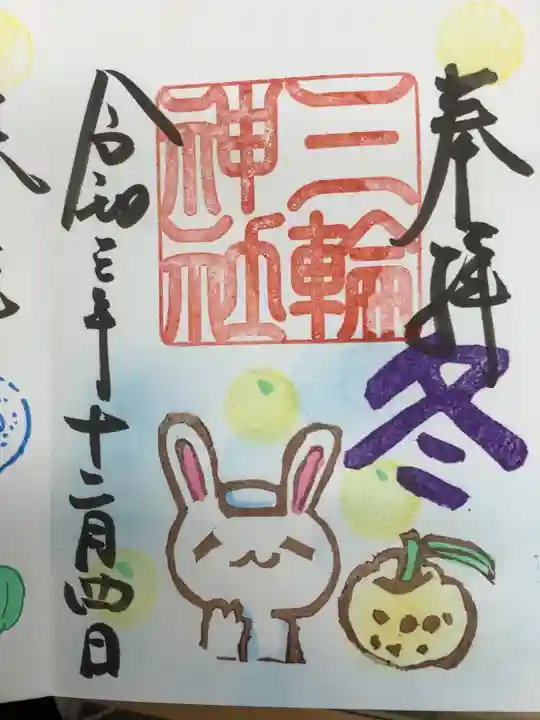 奉拝
冬
三輪
神社
令和三年十二月四日